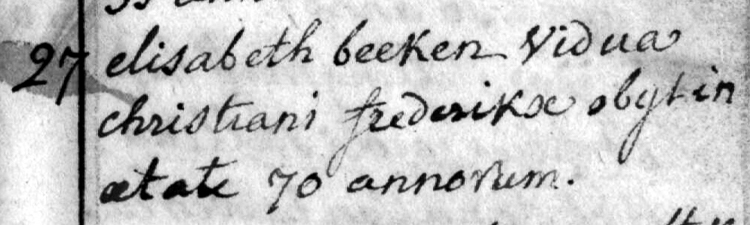 27 elisabeth beeken vidua
christiani frederikx obyt in
ætate 70 annorum.